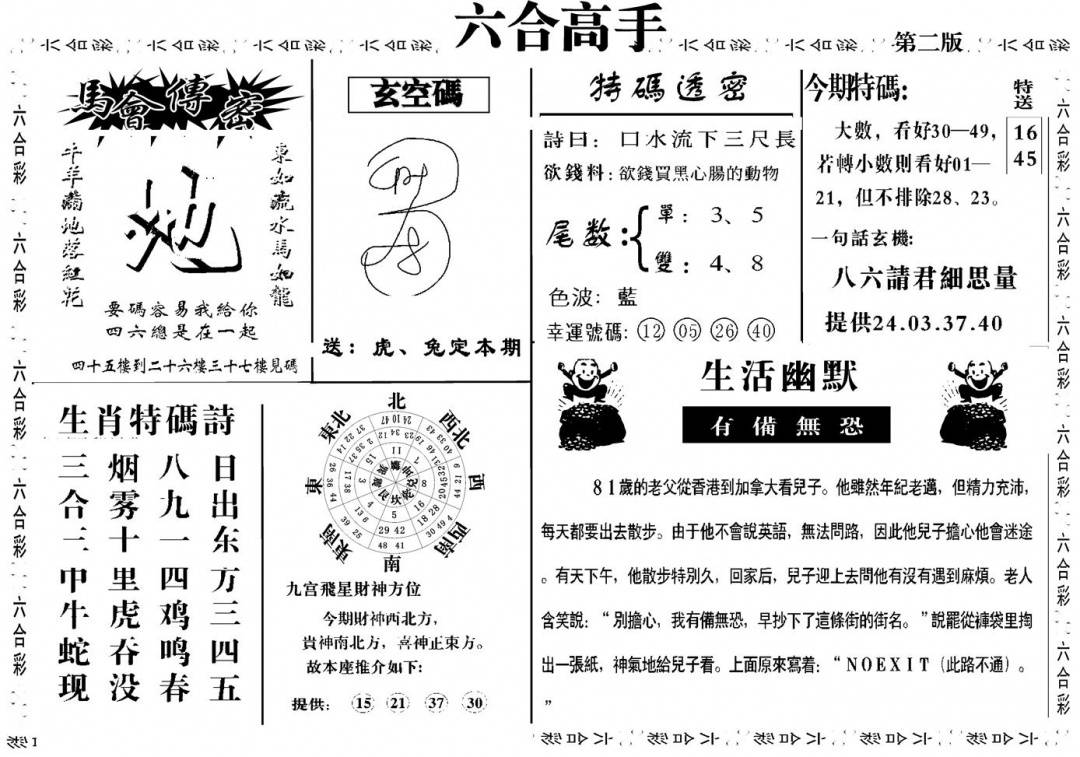 六合高手
第二版
六合彩
馬會傳密
牛羊滿地落紅花
地
東如流水馬如龍
要碼容易我給你
四六總是在一起
四十五樓到二十六樓三十七樓見碼
玄空碼
送：虎、兔定本期
特碼透密
詩曰：口水流下三尺長
欲錢料：欲錢買黑心腸的動物
尾数：
單：3、5
雙：4、8
色波：藍
幸運號碼：12 05 26 40
今期特碼：
特送
16
45
大數，看好30—49，
若轉小數則看好01—
21，但不排除28、23。
一句話玄機：
八六請君細思量
提供24.03.37.40
生肖特碼詩
日出东方三四五
八九一四鸡鸣春
烟雾十里虎吞没
三合二中牛蛇现
北
西北
西
西南
南
東南
東
東北
九宫飛星財神方位
今期財神西北方，
貴神南北方，喜神正東方。
故本座推介如下：
提供：15 21 37 30
生活幽默
有備無恐
81歲的老父從香港到加拿大看兒子。他雖然年紀老邁，但精力充沛，
每天都要出去散步。由于他不會說英語，無法問路，因此他兒子擔心他會迷途
。有天下午，他散步特別久，回家后，兒子迎上去問他有沒有遇到麻煩。老人
含笑說：“別擔心，我有備無恐，早抄下了這條街的街名。”說罷從褲袋里掏
出一張紙，神氣地給兒子看。上面原來寫着：“NOEXIT（此路不通）。
”